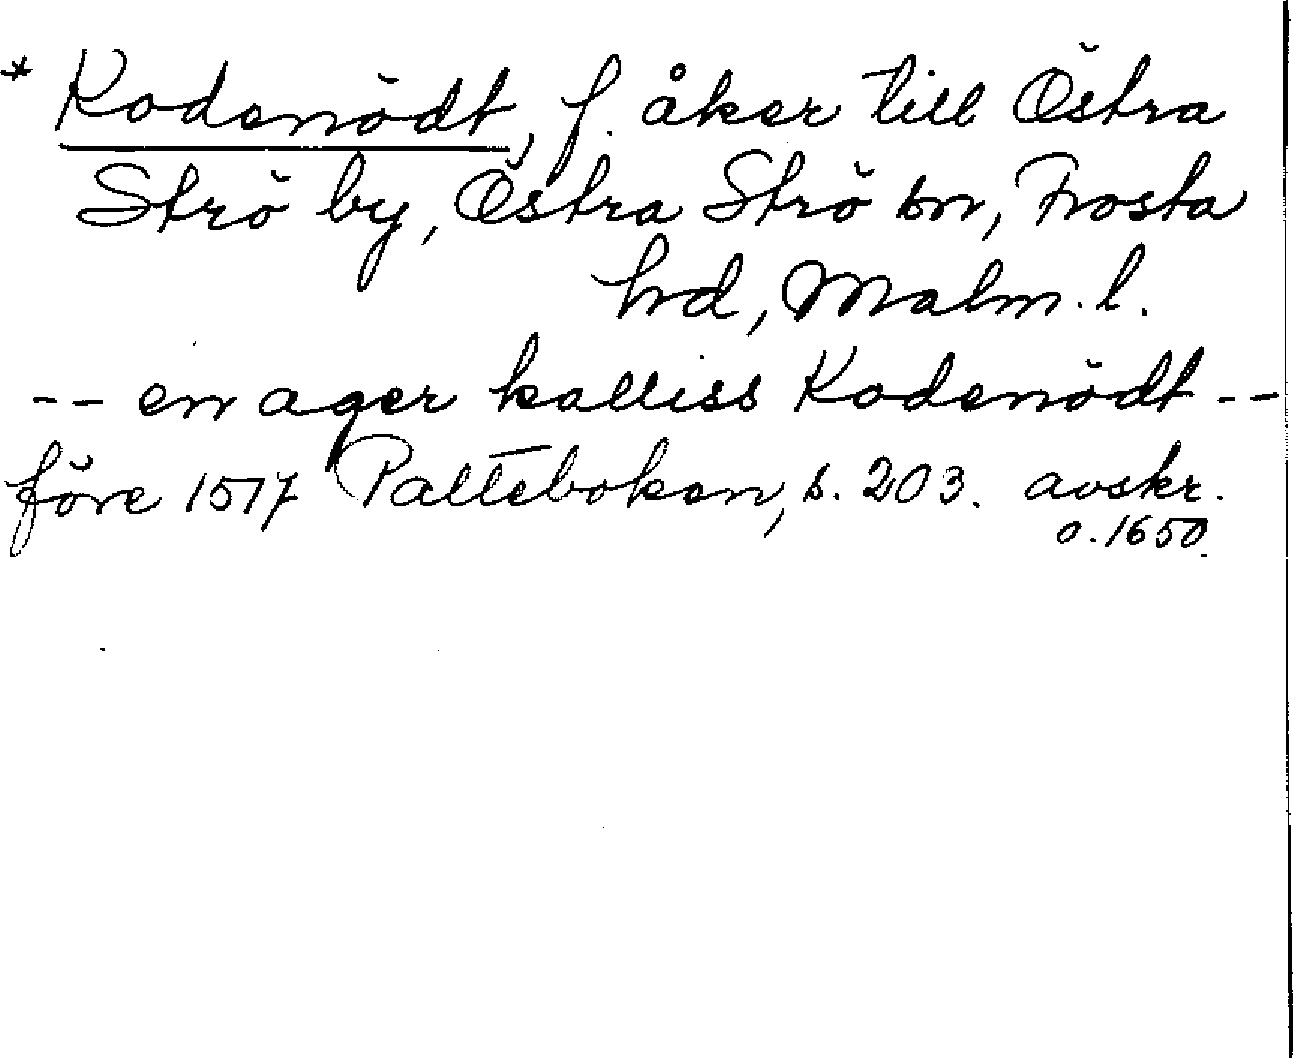 * Kodenödt, f. åker till Östra
Strö by, Östra Strö sn, Frosta
hd, Malm. l.
-- en ager kalliss Kodenödt --
före 1517 Palteboken, s. 203. avskr.
o. 1650.